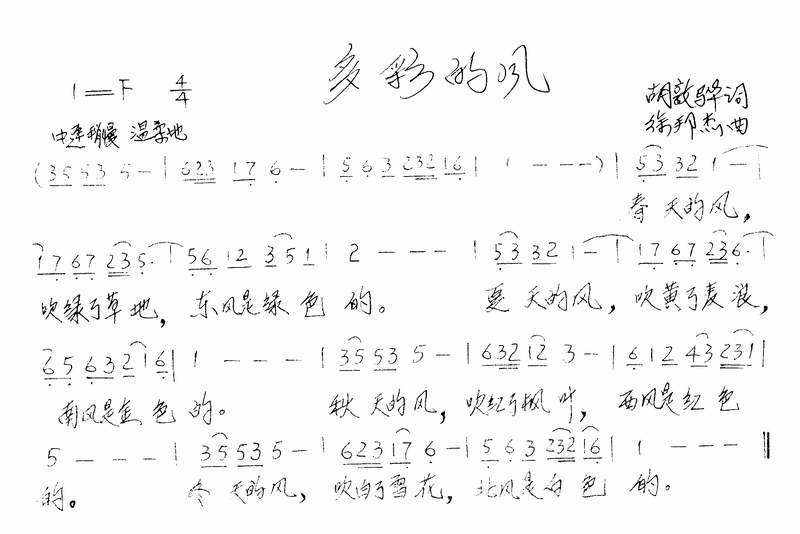 多彩的风
1=F 4/4
胡敦骅词
中速稍慢 温柔地
徐邦杰曲
(35 53 5 - | 623 17 6 - | 5 6 3 232 16 | 1 - - - ) | 53 32 1 - |
春天的风,
17 67 235· | 56 12 351 | 2 - - - | 53 32 1 - | 17 67 236· |
吹绿了草地, 东风是绿色的。 夏天的风, 吹黄了麦浪,
65 63 216 | 1 - - - | 35 53 5 - | 632 12 3 - | 6 12 43 231 |
南风是金色的。 秋天的风, 吹红了枫叶, 西风是红色
5 - - - | 35 53 5 - | 623 17 6 - | 5 6 3 232 16 | 1 - - - ‖
的。 冬天的风, 吹白了雪花, 北风是白色的。